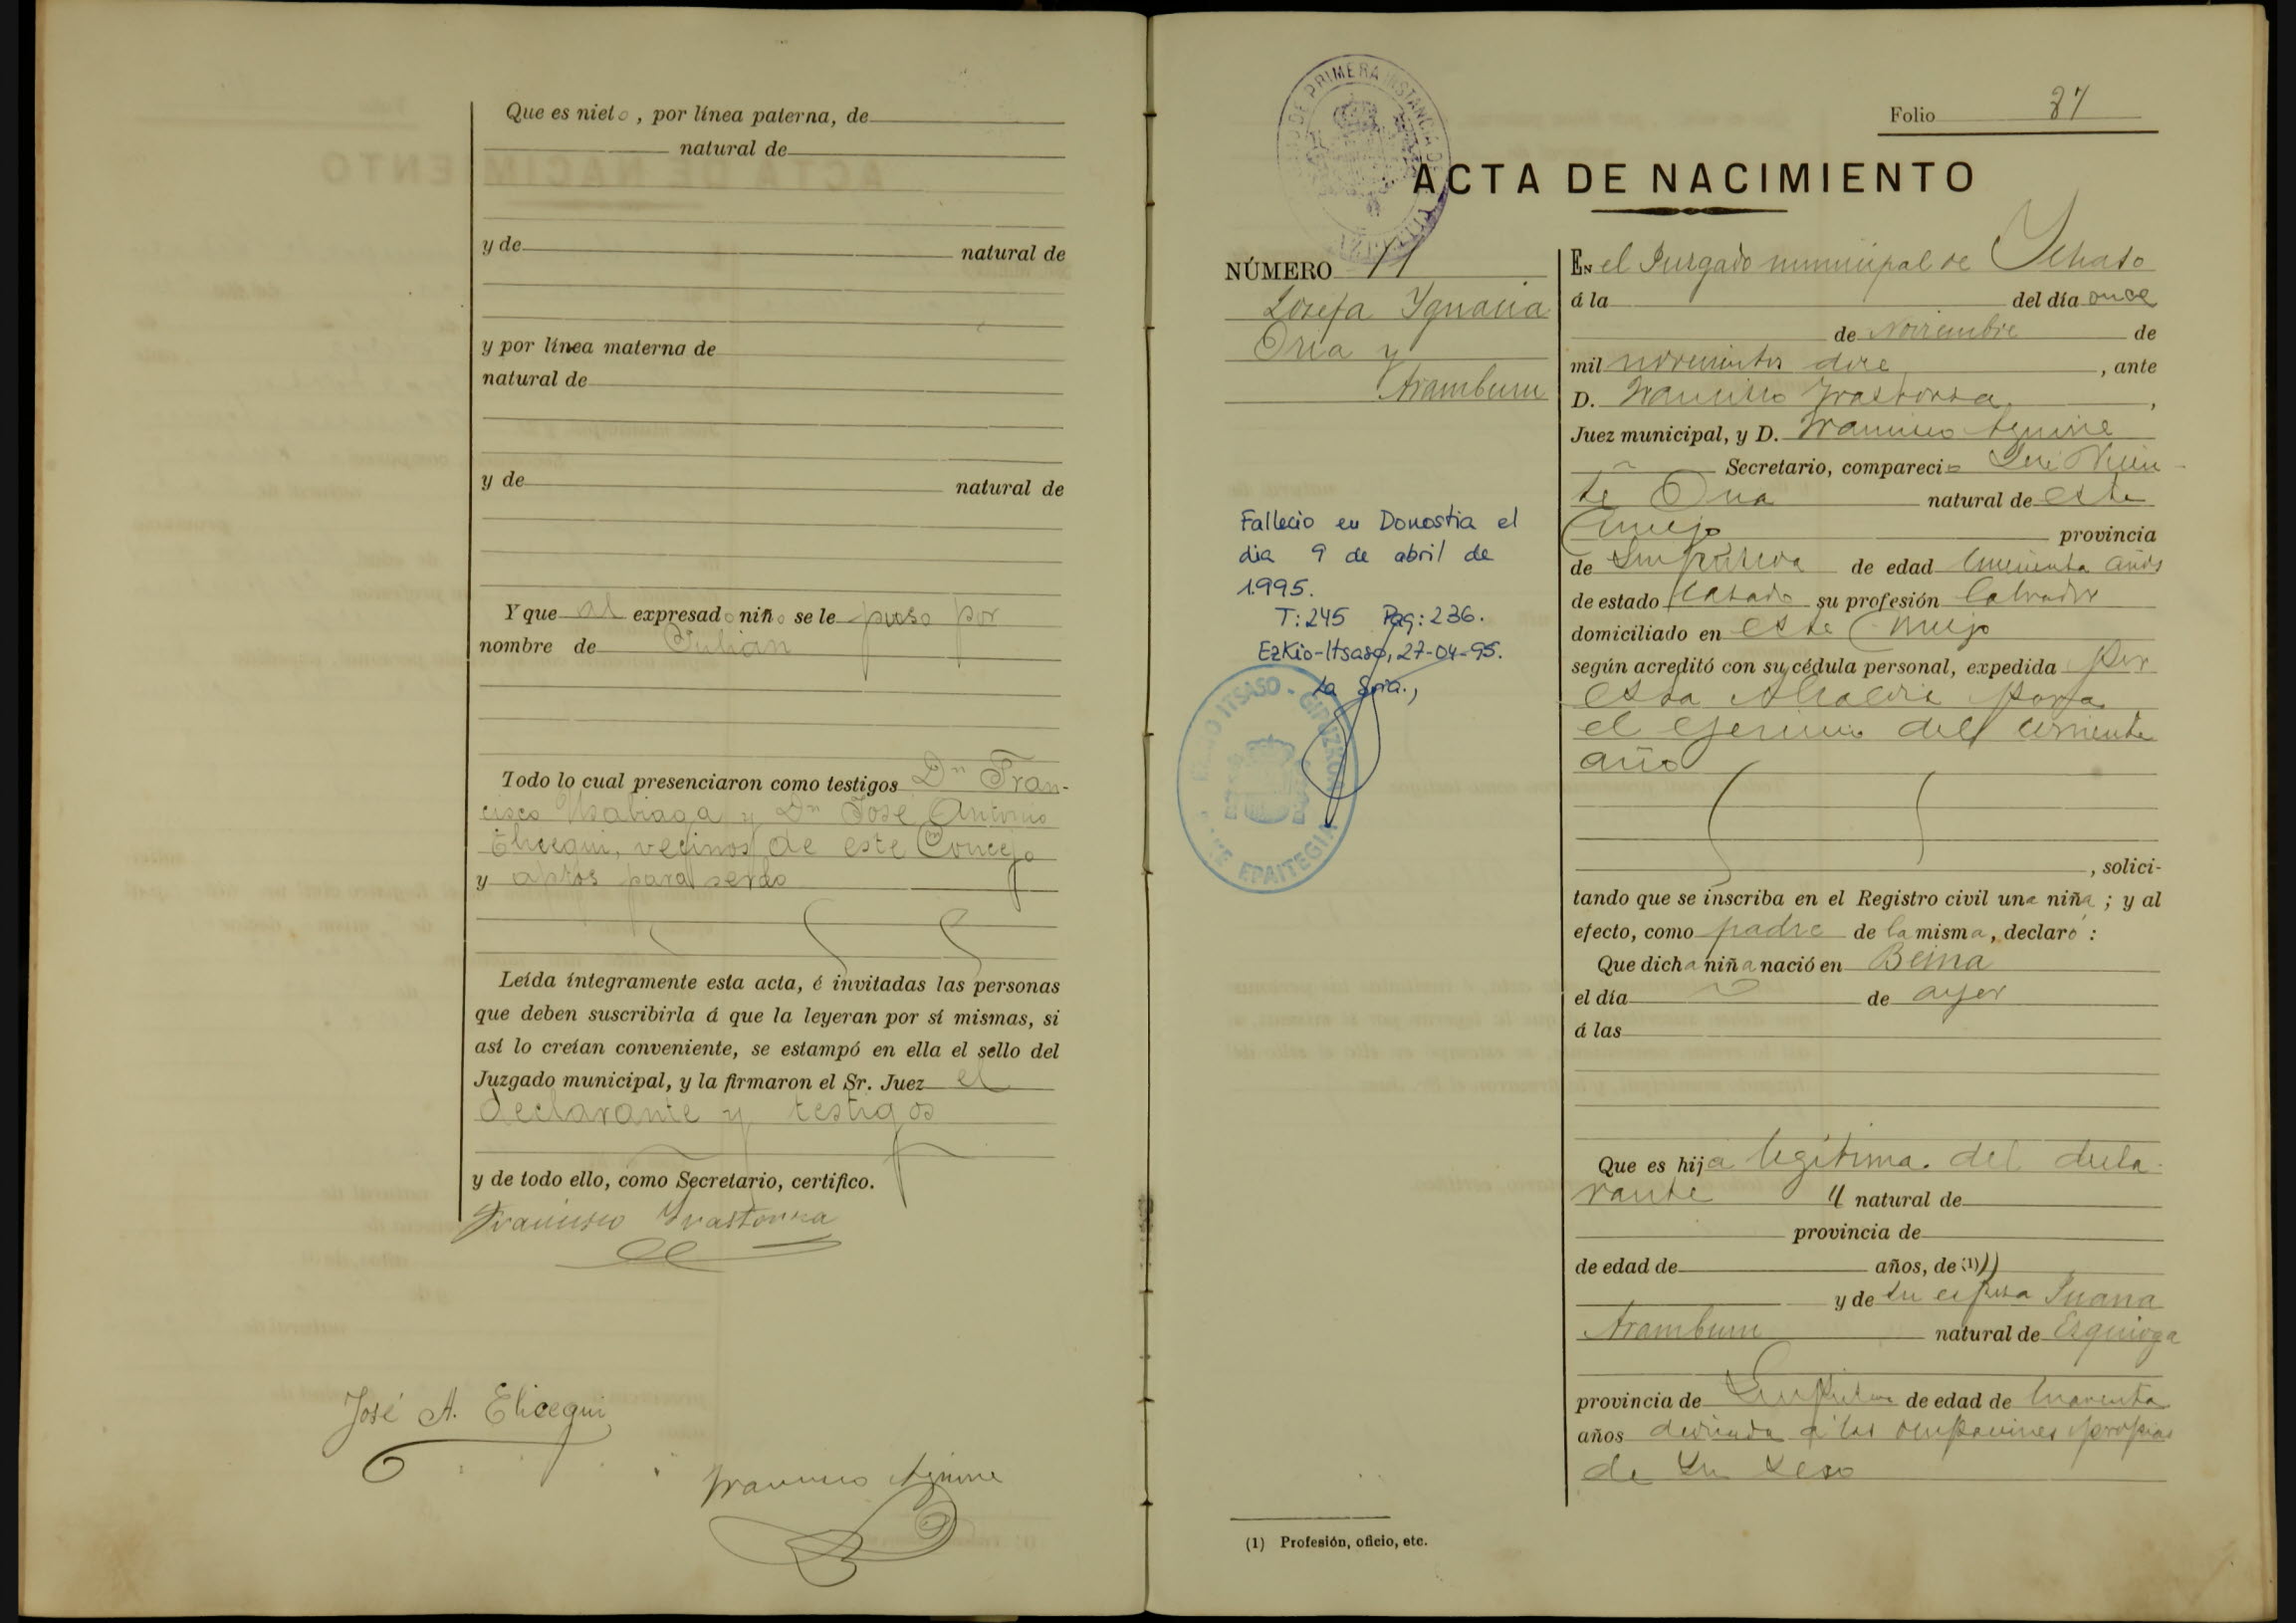 Que es nieto, por línea paterna, de
natural de
y de natural de
y por línea materna de
natural de
y de natural de
Y que al expresado niño se le puso por
nombre de Julian
Todo lo cual presenciaron como testigos Dn Fran-
cisco Usabiaga y Dn José Antonio
Elicegui, vecinos de este Concejo
y aptos para serlo
Leída íntegramente esta acta, é invitadas las personas
que deben suscribirla á que la leyeran por sí mismas, si
así lo creían conveniente, se estampó en ella el sello del
Juzgado municipal, y la firmaron el Sr. Juez el
declarante y testigos
y de todo ello, como Secretario, certifico.
Francisco Yrastorza
José A. Elicegui
Francisco Aguirre
DE PRIMERA INSTANCIA
Folio 27
ACTA DE NACIMIENTO
NÚMERO 11
Josefa Ygnacia
Oria y
Aramburu
Fallecio en Donostia el
dia 9 de abril de
1.995.
T: 245 Pag: 236.
Ezkio-Itsaso, 27-04-95.
La Sria.,
ITSASO - GIPUZKOA
EPAITEGIA
En el Juzgado municipal de Ychaso
á la del día once
de Noviembre de
mil novecientos doce, ante
D. Francisco Yrastorza,
Juez municipal, y D. Francisco Aguirre
Secretario, compareció José Vicen-
te Oria natural de este
Concejo provincia
de Guipúzcoa de edad cincuenta años
de estado casado su profesión labrador
domiciliado en este Concejo
según acreditó con su cédula personal, expedida por
esta Alcaldia para
el ejercicio del corriente
año
, solici-
tando que se inscriba en el Registro civil una niña; y al
efecto, como padre de la misma, declaró:
Que dicha niña nació en Beina
el día de ayer
á las
Que es hija legítima del decla-
rante y natural de
provincia de
de edad de años, de (1)
y de su esposa Juana
Aramburu natural de Ezquioga
provincia de Guipúzcoa de edad de cuarenta
años dedicada a las ocupaciones propias
de su sexo
(1) Profesión, oficio, etc.